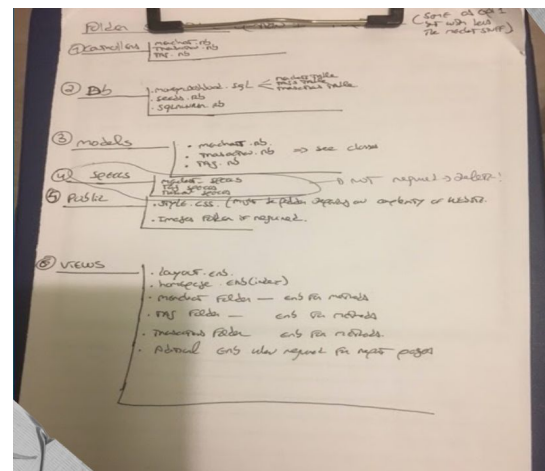 Folder
(Same as opt 1
but with less
the market stuff)
① Controllers
merchant.rb
transaction.rb
tag.rb
② Db
.sql
merchant table
tags table
transactions table
· seeds.rb
· sqlrunner.rb
③ models
· merchant.rb
· transaction.rb => see classes
· tag.rb
④ specs
merchant specs
tag specs
specs
NOT required → delete!
⑤ Public
· style.css. (might be folder depending on complexity of website
· Images folder if required.
⑥ VIEWS
· layout.erb.
· homepage.erb (index)
· merchant Folder — erb for methods
· TAG Folder — erb for methods
· Transactions Folder erb for methods.
· Additional erb when required for pages